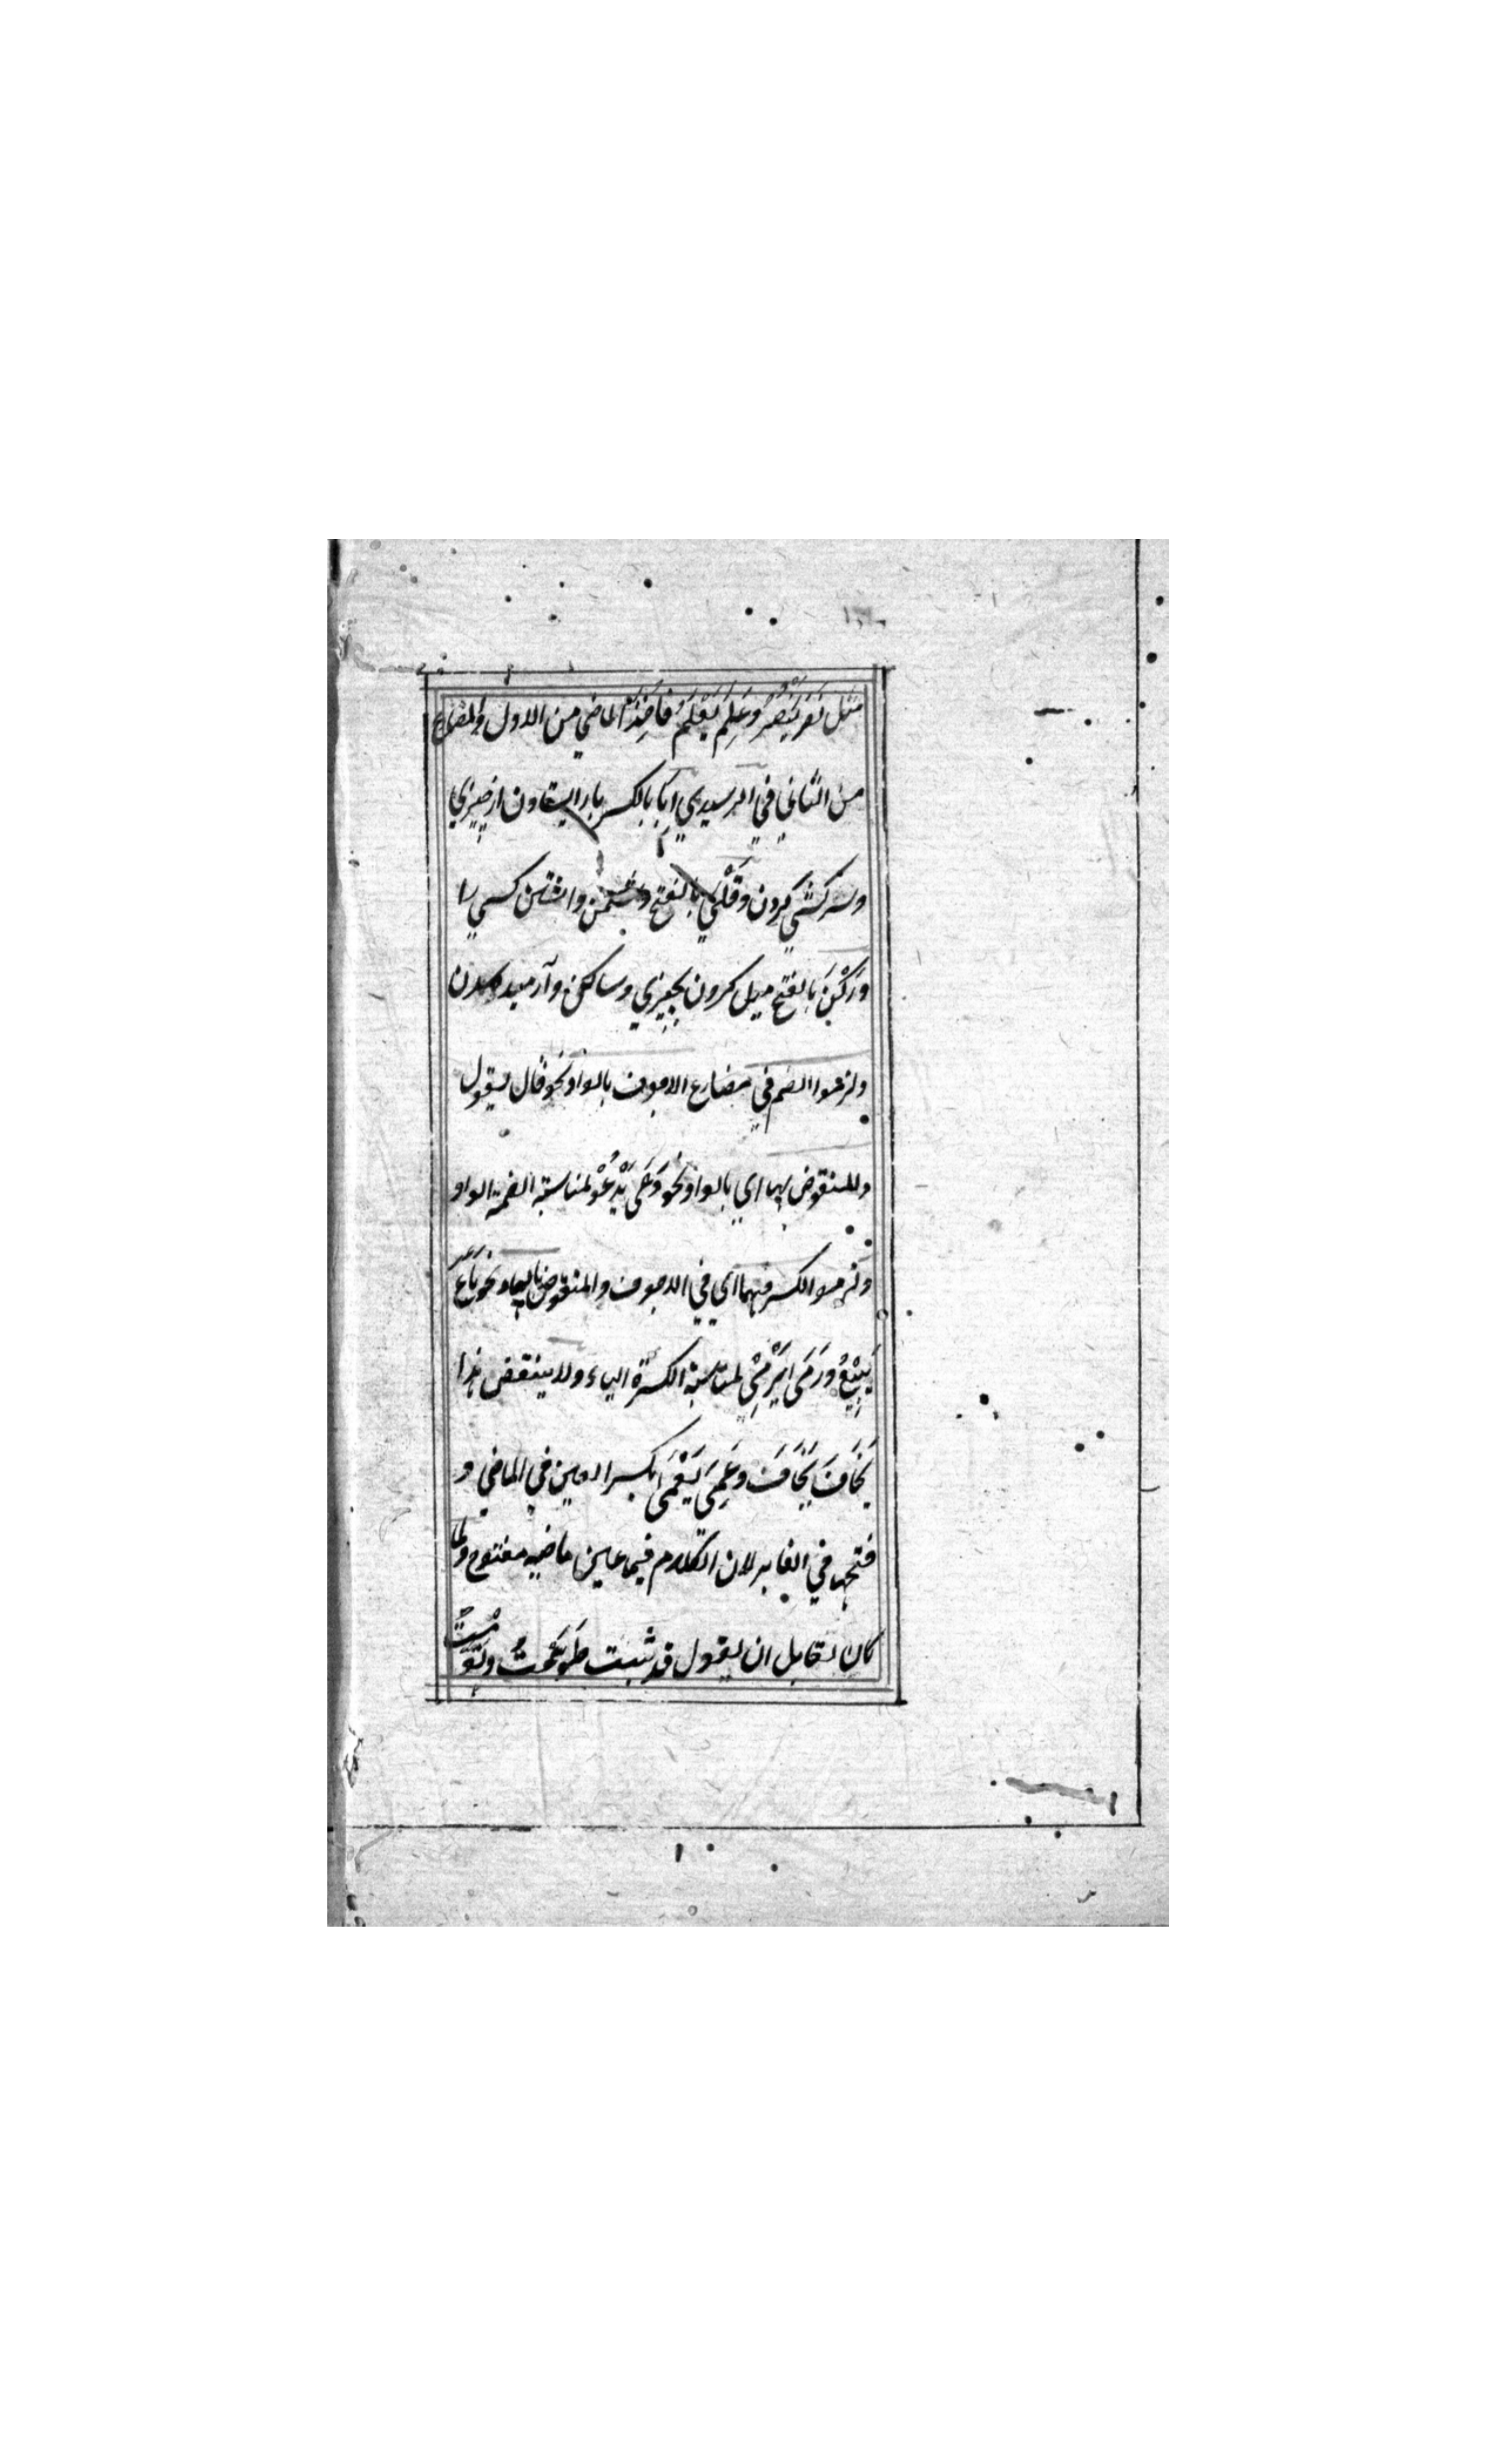 مثل نصر يَنصُرُ وعَلِمَ يَعْلَمُ فاخذ الماضي من الاول والمضارع
من الثاني في ابا بالكسر باز ايستادن از چيزي
وسركشي كردن وقَلْي بالفتح دشمن داشتن كسي را
ورَكْنَ بالفتح ميل كردن بچيزي وساكن وآرميده
ولزموا الضم في مضارع الاجوف بالواو نحو قال يقول
وللمنقوض بها اي بالواو نحو دَعَى يَدْعُوْ لمناسبة الضمة الواو
ولزموا الكسر فيهما اي في الاجوف والمنقوض بالياء نحو بَاعَ
يَبِيْعُ ورَمَى يَرْمِيْ لمناسبة الكسرة الياء ولا ينتقض هذا
خَافَ يَخَافَ وعَمِىَ يَعْمَى بكسر العين في الماضي و
فتحها في الغابر لان الكلام فيما عين ماضيه مفتوح ولما
كان لقايل ان يقول قد ثبت طَوَّحْتُ وتَوَّهْتُ